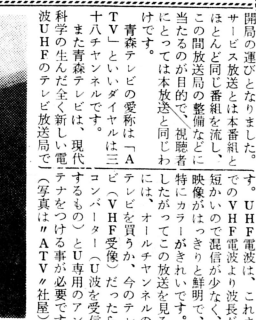 開局の運びとなりました。
サービス放送とは本番組と
ほとんど同じ番組を流し、
この間放送局の整備などに
当たるのが目的で、視聴者
にとっては本放送と同じわ
けです。
青森テレビの愛称は「A
TV」といいダイヤルは三
十八チャンネルです。
また青森テレビは、現代
科学の生んだ全く新しい電
波UHFのテレビ放送局で
す。UHF電波は、これま
でのVHF電波より波長が
短かいので混信が少なく、
映像がはっきりと鮮明で、
特にカラーがきれいです。
したがってこの放送を見る
には、オールチャンネルの
テレビを買うか、今のテレ
ビ(VHF受像)だったら
コンバーター(U波を受信
するもの)とU専用のアン
テナをつける事が必要です
(写真は〃ATV〃社屋)